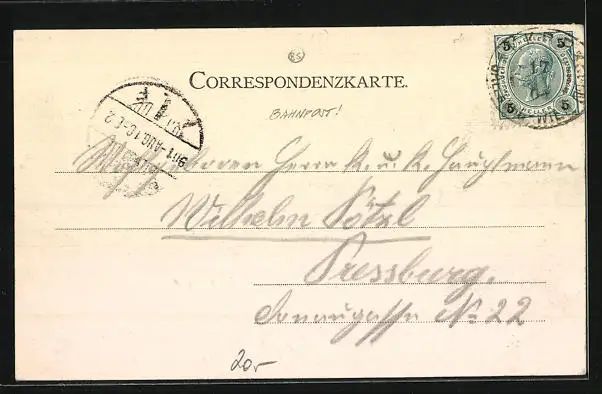 CORRESPONDENZKARTE.
BAHNPOST!
5 5
HELLER
5 5
17
Wohlgeboren Herrn K. u. k. Hauptmann
Wilhelm Pötzl
Pressburg.
Donaugasse No 22
20.-